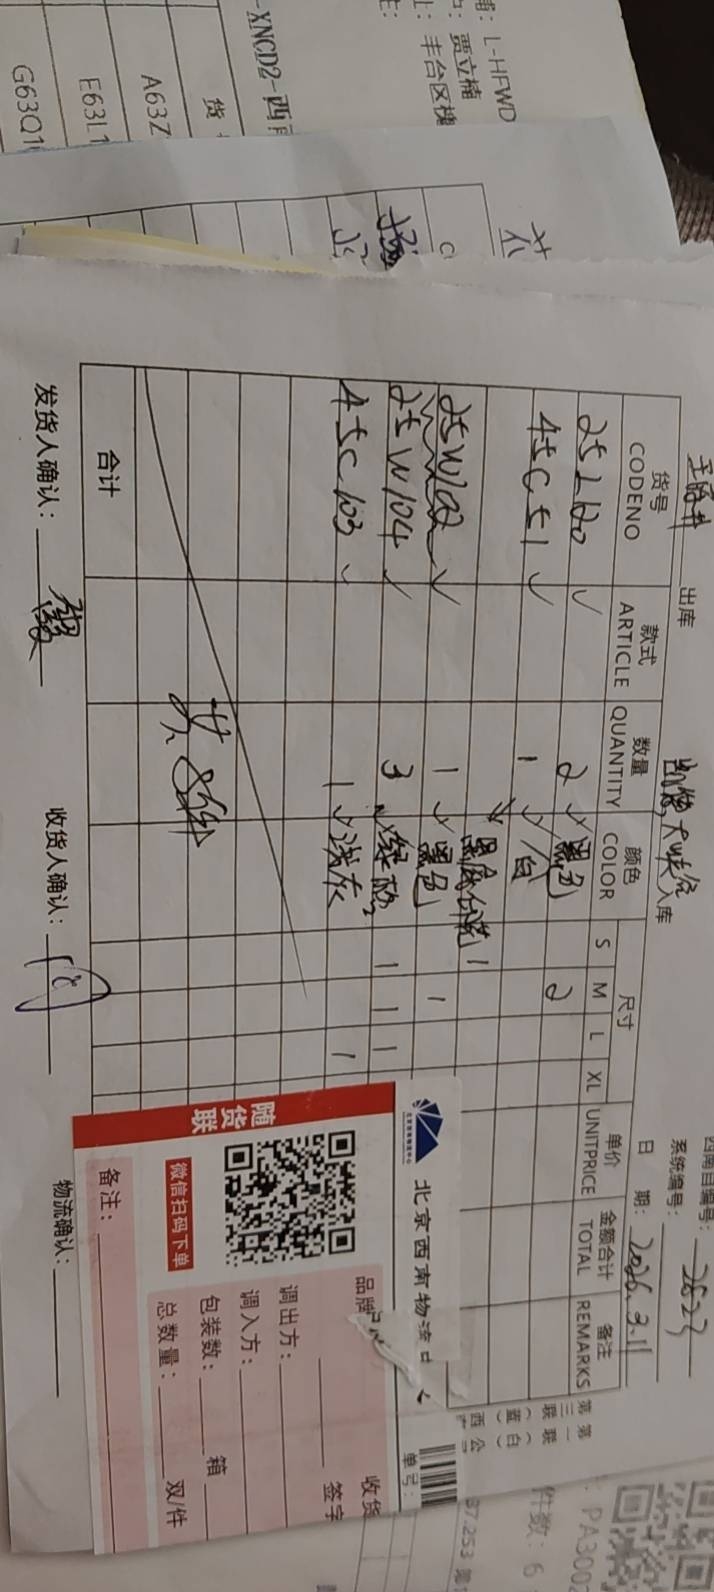 铺: L-HFWD
贾立楠
丰台区槐
-XNCD2-西南
货
A63Z
E63L1
G63Q1
系统编号: 2823
出库
入库
日 期: 2026.3.11
货号 款式 数量 颜色 尺寸 单价 金额合计 备注
CODENO ARTICLE QUANTITY COLOR S M L XL UNITPRICE TOTAL REMARKS
25L120 ✓ 2 ✓ 黑色 2
45C51 ✓ 1 ✓ 白
黑底白花 1
25W102 ✓ 1 ✓ 黑色 1
25W104 ✓ 3 ✓ 1 1 1
45C103 ✓ 1 ✓ 浅灰 1
共8件
合计
发货人确认:
收货人确认:
物流确认:
北京西南物流中
单号:
品牌
收货
调出方: 签字
调入方:
包装数: 箱
总数量: 双/件
随货联
微信扫码下单
备注:
第一联(白
第三联(蓝
件数: 6
PA300
37.253